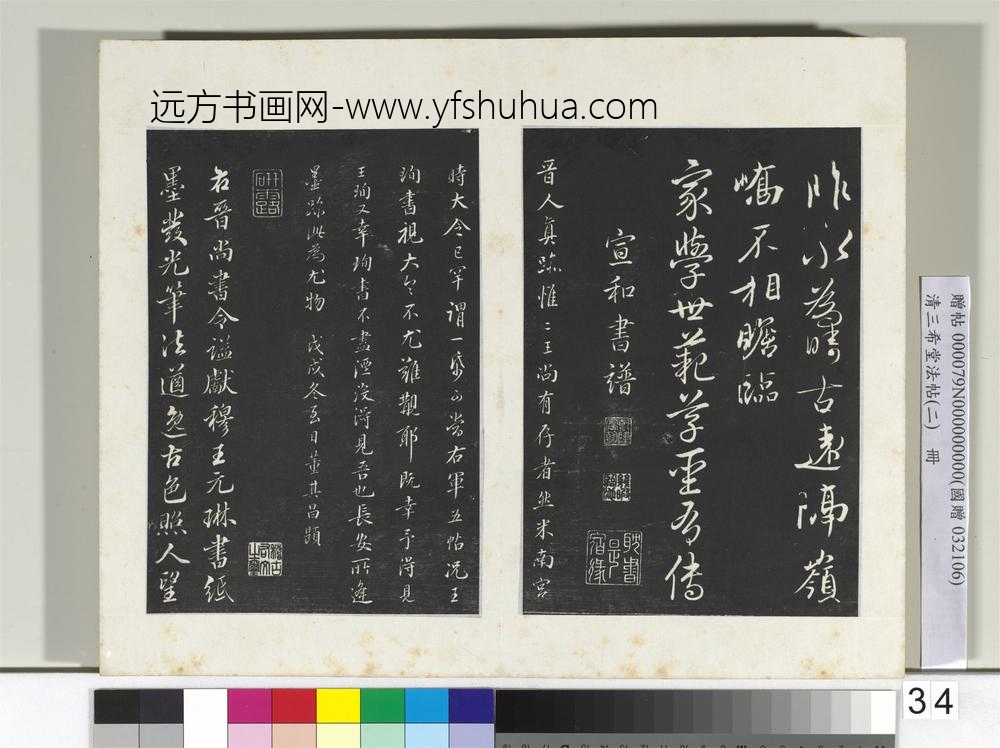 远方书画网-www.yfshuhua.com
昨永為疇古遠隔嶺
嶠不相瞻臨
家學世範草聖有傳
宣和書譜
耽書是宿緣
晉人真跡惟二王尚有存者然米南宮
時大令已罕謂一紙可當右軍五帖況王
珣書視大令不尤難覯耶既幸予得見
王珣又幸珣書不盡湮沒得見吾也長安所逢
墨跡此為尤物 戊戌冬至日董其昌題
研露
右晉尚書令謚獻穆王元琳書紙
墨發光筆法遒逸古色照人望
贈帖 000079N000000000(國贈 032106)
清三希堂法帖(二) 冊
34